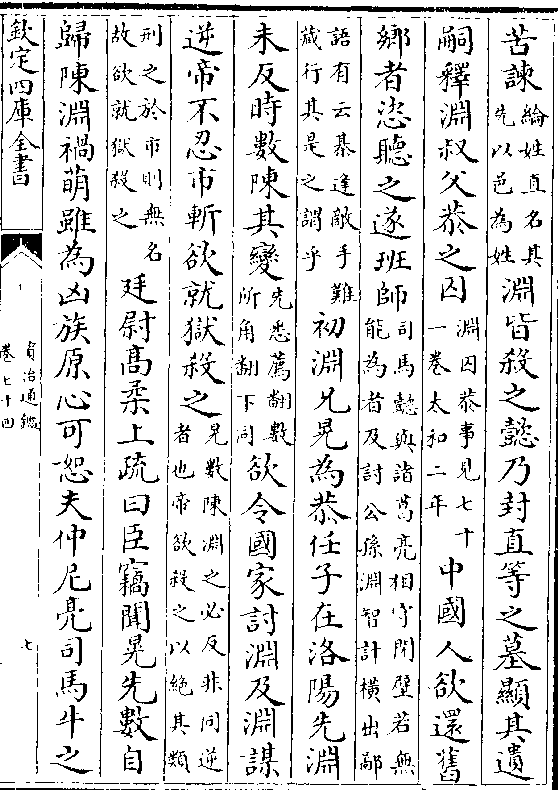 苦諫綸姓直名其先以邑為姓淵皆殺之懿乃封直等之墓顯其遺
嗣釋淵叔父恭之囚淵囚恭事見七十一卷太和二年中國人欲還舊
鄉者恣聽之遂班師司馬懿與諸葛亮相守閉壁若無能為者及討公孫淵智計橫出鄙
語有云棊逢敵手難藏行其是之謂乎初淵兄晃為恭任子在洛陽先淵
未反時數陳其變先悉薦翻數所角翻下同欲令國家討淵及淵謀
逆帝不忍市斬欲就獄殺之晃數陳淵之必反非同逆者也帝欲殺之以絕其類
刑之於市則無名故欲就獄殺之廷尉高柔上疏曰臣竊聞晃先數自
歸陳淵禍萌雖為凶族原心可恕夫仲尼亮司馬牛之
欽定四庫全書
資治通鑑
卷七十四
七